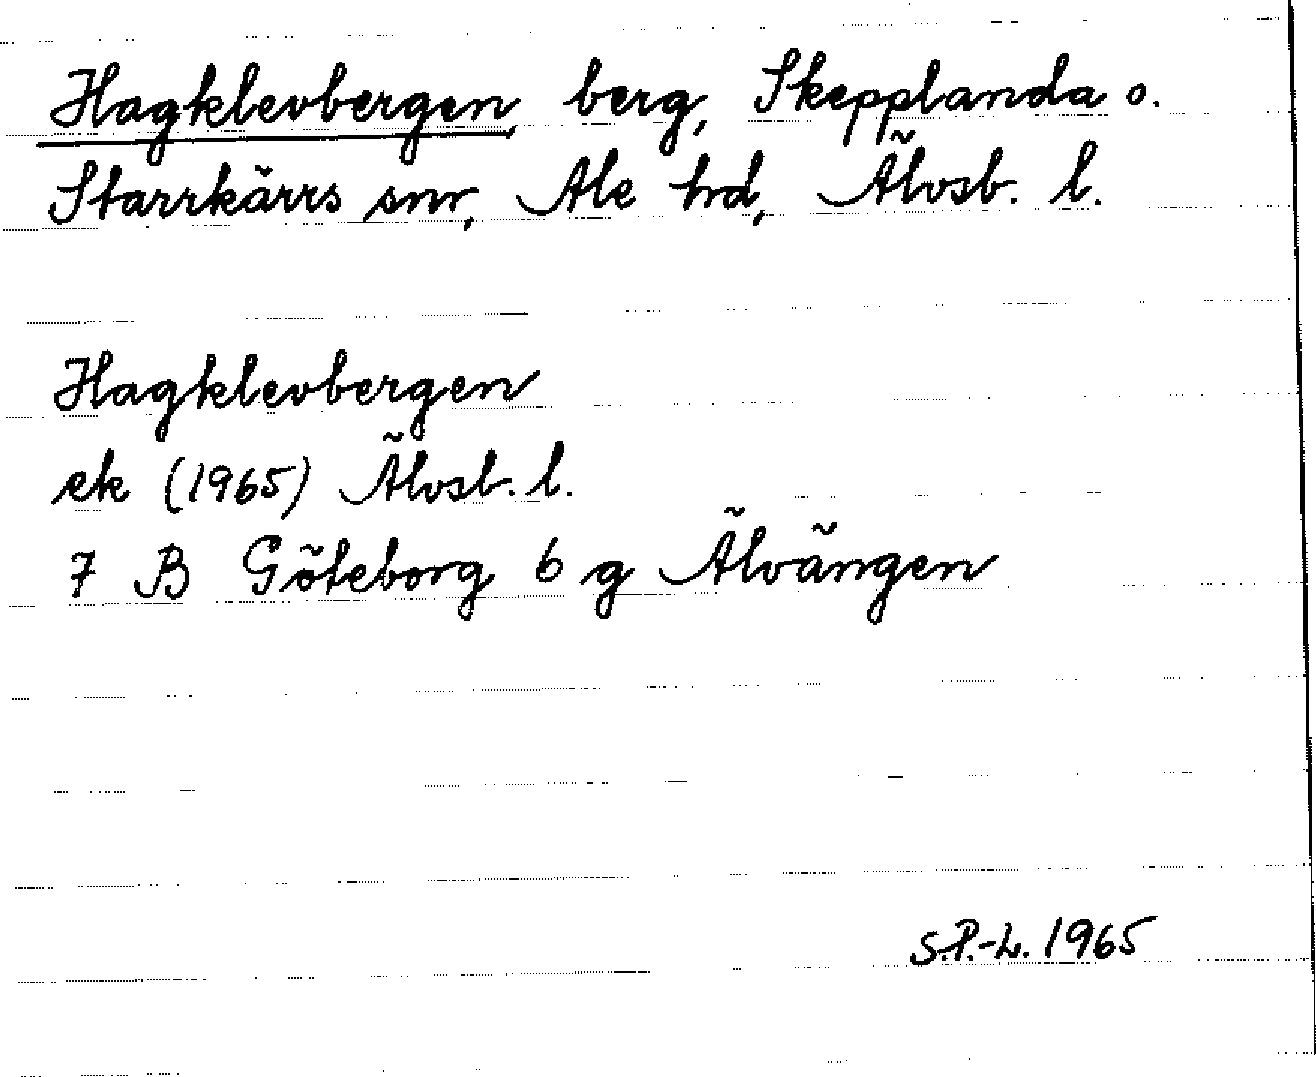 Hagklevbergen, berg, Skepplanda o.
Starrkärrs snr, Ale hd, Älvsb. l.
Hagklevbergen
ek (1965) Älvsb. l.
7 B Göteborg 6 g Älvängen
S.P.-L. 1965